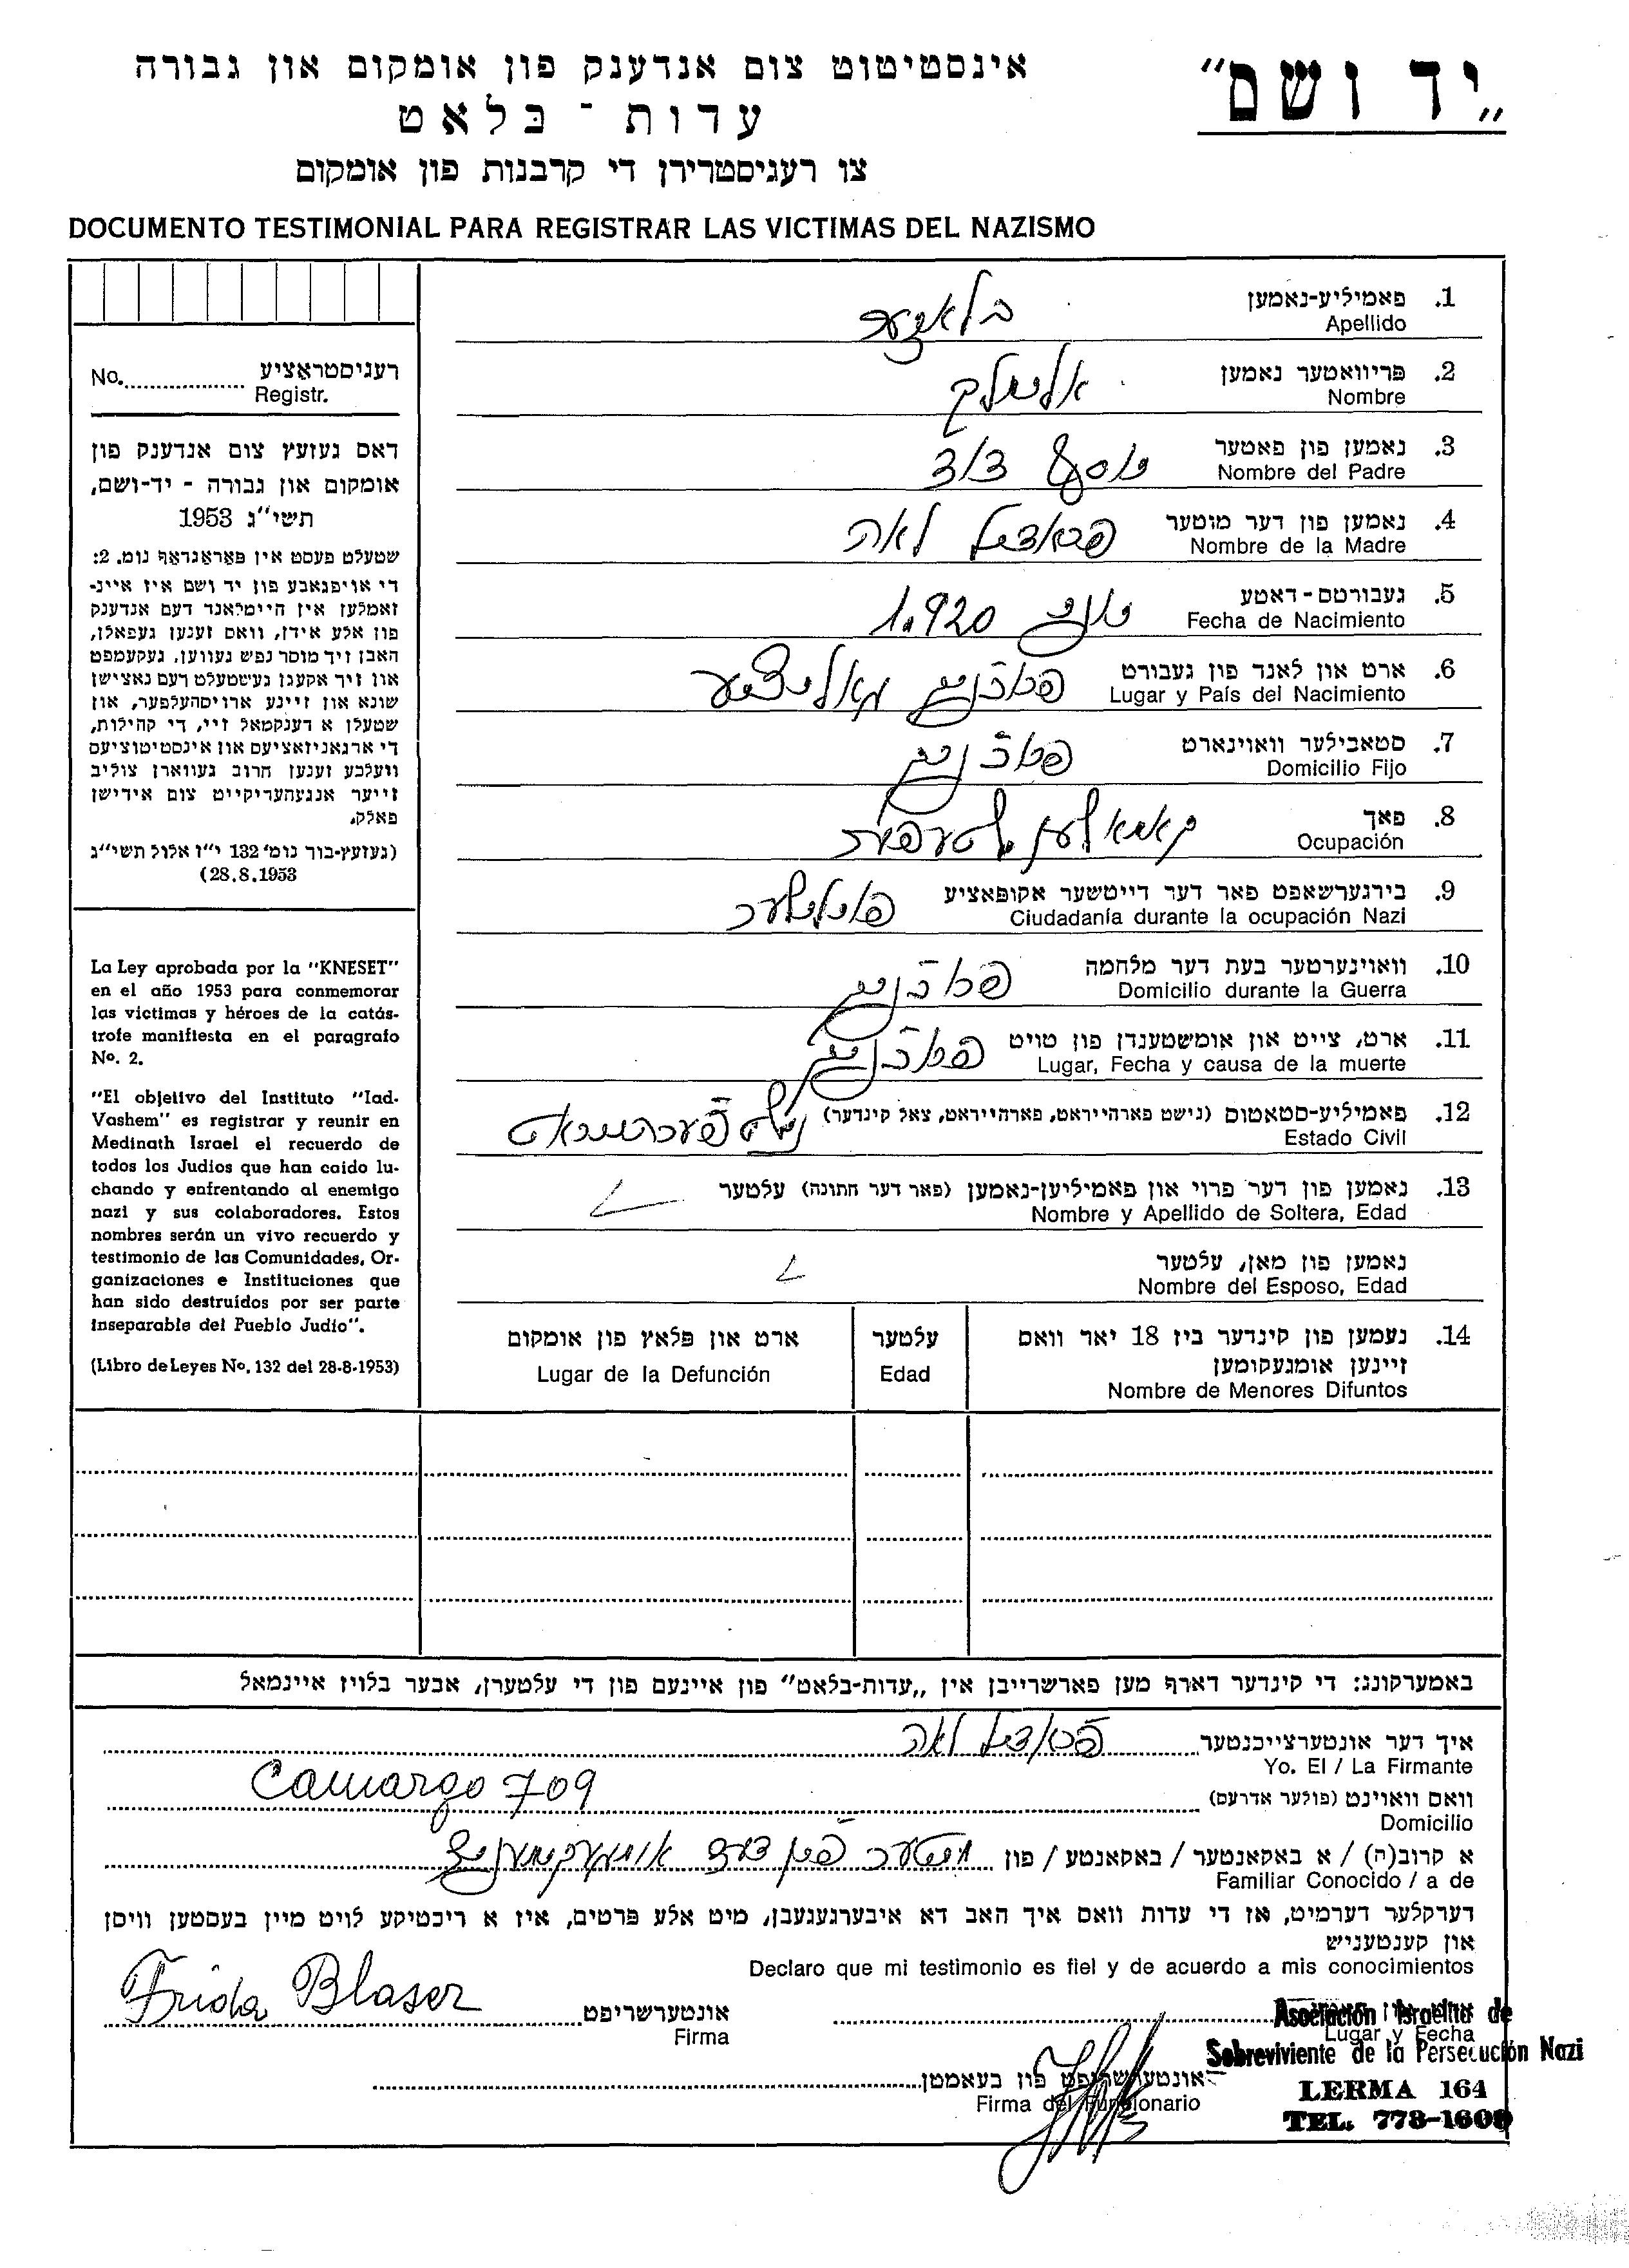 „יד ושם"
אינסטיטוט צום אנדענק פון אומקום און גבורה
עדות - בלאט
צו רעגיסטרירן די קרבנות פון אומקום
DOCUMENTO TESTIMONIAL PARA REGISTRAR LAS VICTIMAS DEL NAZISMO
1. פאמיליע-נאמען
Apellido
2. פריוואטער נאמען
Nombre
3. נאמען פון פאטער יוסף
Nombre del Padre
4. נאמען פון דער מוטער לאה
Nombre de la Madre
5. געבורטס-דאטע 1.920
Fecha de Nacimiento
6. ארט און לאנד פון געבורט
Lugar y País del Nacimiento
7. סטאבילער וואוינארט
Domicilio Fijo
8. פאך
Ocupación
9. בירגערשאפט פאר דער דייטשער אקופאציע פוילישער
Ciudadanía durante la ocupación Nazi
10. וואוינערטער בעת דער מלחמה
Domicilio durante la Guerra
11. ארט, צייט און אומשטענדן פון טויט
Lugar, Fecha y causa de la muerte
12. פאמיליע-סטאטוס (נישט פארהייראט, פארהייראט, צאל קינדער) נישט פערהייראט
Estado Civil
13. נאמען פון דער פרוי און פאמיליען-נאמען (פאר דער חתונה) עלטער
Nombre y Apellido de Soltera, Edad
נאמען פון מאן, עלטער
Nombre del Esposo, Edad
14. נעמען פון קינדער ביז 18 יאר וואס
זיינען אומגעקומען
Nombre de Menores Difuntos
עלטער
Edad
ארט און פלאץ פון אומקום
Lugar de la Defunción
רעגיסטראציע
No. Registr.
דאס געזעץ צום אנדענק פון
אומקום און גבורה - יד-ושם,
תשי"ג 1953
שטעלט פעסט אין פאראגראף נומ. 2:
די אויפגאבע פון יד ושם איז איינ-
זאמלען אין היימלאנד דעם אנדענק
פון אלע אידן, וואס זענען געפאלן,
האבן זיך מוסר נפש געווען, געקעמפט
און זיך אקעגן געשטעלט דעם נאצישן
שונא און זיינע ארויסהעלפער, און
שטעלן א דענקמאל זיי, די קהילות,
די ארגאניזאציעס און אינסטיטוציעס
וועלכע זענען חרוב געווארן צוליב
זייער אנגעהעריקייט צום אידישן
פאלק.
(געזעץ-בוך נומ' 132 י"ז אלול תשי"ג
28.8.1953)
La Ley aprobada por la "KNESET"
en el año 1953 para conmemorar
las víctimas y héroes de la catás-
trofe manifiesta en el paragrafo
Nº. 2.
"El objetivo del Instituto "Iad-
Vashem" es registrar y reunir en
Medinath Israel el recuerdo de
todos los Judios que han caido lu-
chando y enfrentando al enemigo
nazi y sus colaboradores. Estos
nombres serán un vivo recuerdo y
testimonio de las Comunidades, Or-
ganizaciones e Instituciones que
han sido destruidos por ser parte
inseparable del Pueblo Judio".
(Libro de Leyes Nº. 132 del 28-8-1953)
באמערקונג: די קינדער דארף מען פארשרייבן אין „עדות-בלאט" פון איינעם פון די עלטערן, אבער בלויז איינמאל
איך דער אונטערצייכנטער לאה
Yo. El / La Firmante
וואס וואוינט (פולער אדרעס) Camargo 709
Domicilio
א קרוב(ה) / א באקאנטער / באקאנטע / פון
Familiar Conocido / a de
דערקלער דערמיט, אז די עדות וואס איך האב דא איבערגעגעבן, מיט אלע פרטים, איז א ריכטיקע לויט מיין בעסטען וויסן
און קענטעניש
Declaro que mi testimonio es fiel y de acuerdo a mis conocimientos
אונטערשריפט Frida Blaser
Firma
Lugar y Fecha
Asociación Israelita de
Sobreviviente de la Persecución Nazi
LERMA 164
TEL. 773-1600
אונטערשריפט פון בעאמטן
Firma del Funcionario